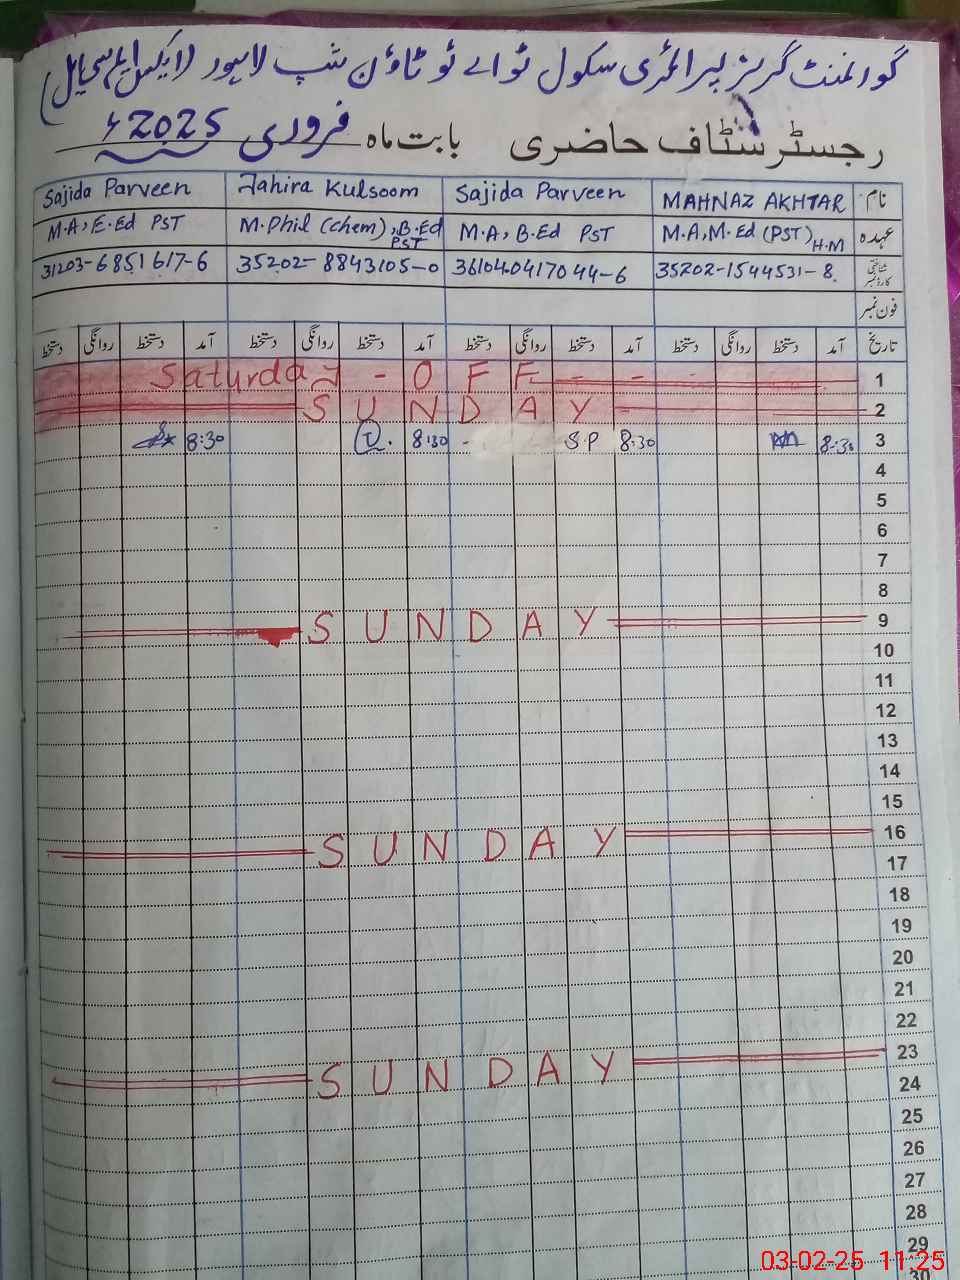 گورنمنٹ گرلز پرائمری سکول ٹو اے ٹو ٹاؤن شپ لاہور (ایکس ایم سی ایل)
رجسٹر سٹاف حاضری بابت ماہ فروری 2025ء
نام MAHNAZ AKHTAR Sajida Parveen Tahira Kulsoom Sajida Parveen
عہدہ M.A, M.Ed (PST) H.M M.A, B.Ed PST M.Phil (Chem), B.Ed PST M.A, E.Ed PST
شناختی کارڈ نمبر 35202-1544531-8 361040417044-6 35202-8843105-0 31203-6851617-6
فون نمبر
تاریخ آمد دستخط روانگی دستخط آمد دستخط روانگی دستخط آمد دستخط روانگی دستخط آمد دستخط روانگی دستخط
1 Saturday - OFF - - - - -
2 SUNDAY -
3 8:30 8:30 S.P 8:30 8:30
4
5
6
7
8
9 SUNDAY
10
11
12
13
14
15
16 SUNDAY
17
18
19
20
21
22
23 SUNDAY
24
25
26
27
28
29
30
03-02-25 11:25